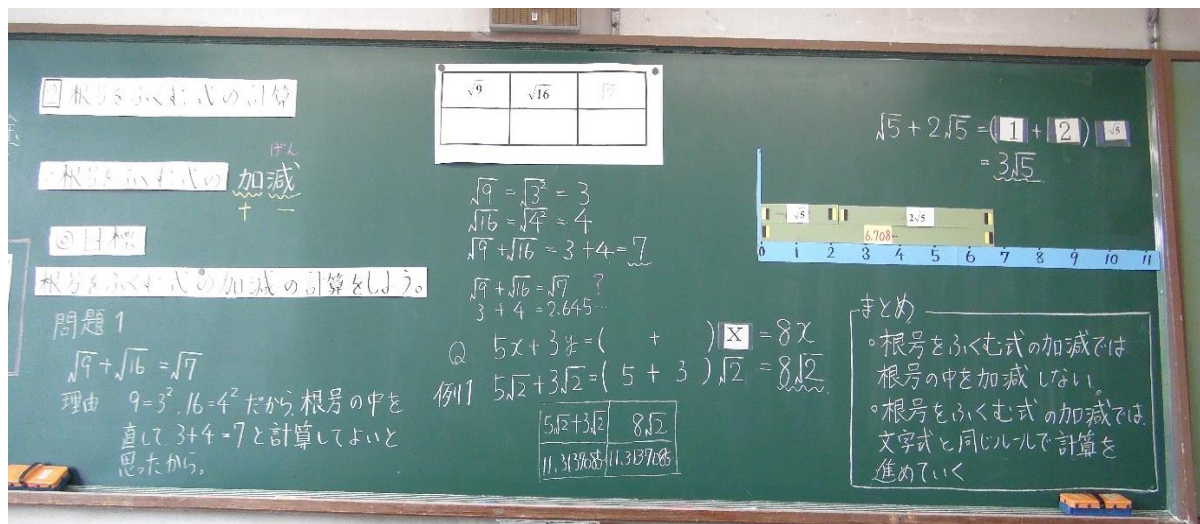 2 根号をふくむ式の計算
○根号をふくむ式の 加減
げん
+ −
◎目標
根号をふくむ式の加減の計算をしよう。
問題1
√9+√16=√7
理由 9=3².16=4²だから、根号の中を
直して、3+4=7と計算してよいと
思ったから。
√9 √16 √7
√9=√3²=3
√16=√4²=4
√9+√16=3+4=7
√9+√16=√7 ?
3+4=2.645…
Q 5x+3x=( + )X=8x
例1 5√2+3√2=(5+3)√2=8√2
5√2+3√2 8√2
11.3137085 11.3137085
√5+2√5=(1+2)√5
=3√5
√5 2√5
6.708
0 1 2 3 4 5 6 7 8 9 10 11
まとめ
・根号をふくむ式の加減では
根号の中を加減しない。
・根号をふくむ式の加減では、
文字式と同じルールで計算を
進めていく